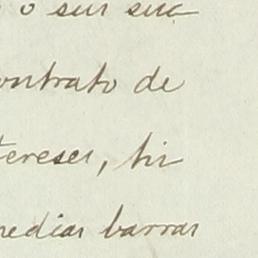 o sus suc
ontrato de
tereses, tir
medias barras